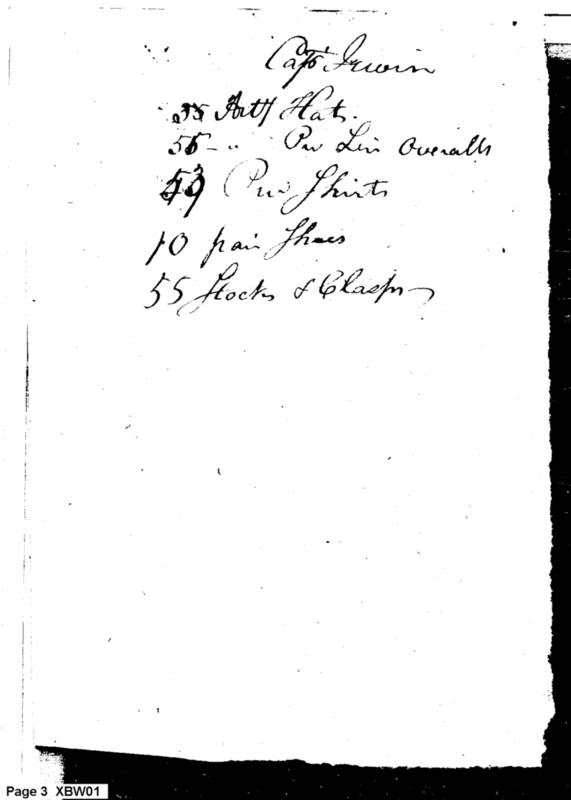 Capt Irwin
55 Arty Hats.
55 - " Prs Lin Overalls
Prs Shirts
10 pair Shoes
55 Stocks & Clasps
Page 3 XBW01